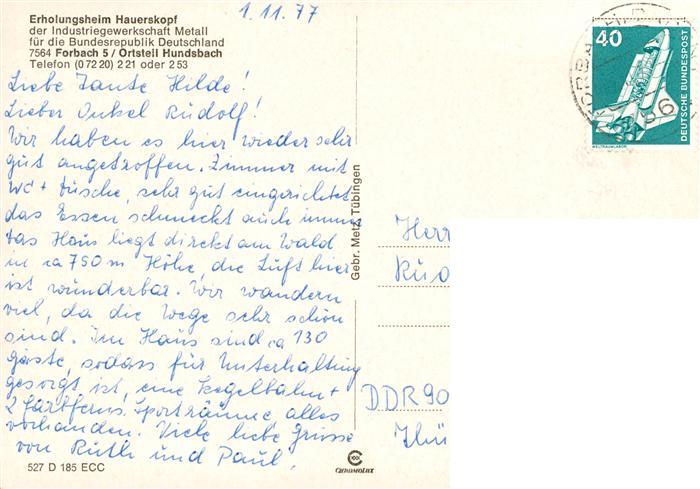 1.11.77
Erholungsheim Hauerskopf
der Industriegewerkschaft Metall
für die Bundesrepublik Deutschland
7564 Forbach 5 / Ortsteil Hundsbach
Telefon (0 72 20) 2 21 oder 2 53
Liebe Tante Hilde!
Lieber Onkel Rudolf!
Wir haben es hier wieder sehr
gut angetroffen. Zimmer mit
WC + Dusche, sehr gut eingerichtet
das Essen schmeckt auch immer
Das Haus liegt direkt am Wald
in ca 750 m Höhe, die Luft hier
ist wunderbar. Wir wandern
viel, da die Wege sehr schön
sind. Im Haus sind ca 130
Gäste, sodass für Unterhaltung
gesorgt ist, eine Kegelbahn +
2 Farbferns. Sporträume alles
vorhanden. Viele liebe Grüsse
von Ruth und Paul.
527 D 185 ECC
Gebr. Metz, Tübingen
CHROMOLUX
40
DEUTSCHE BUNDESPOST
WELTRAUMLABOR
Herr
Rud
DDR 90
Thü